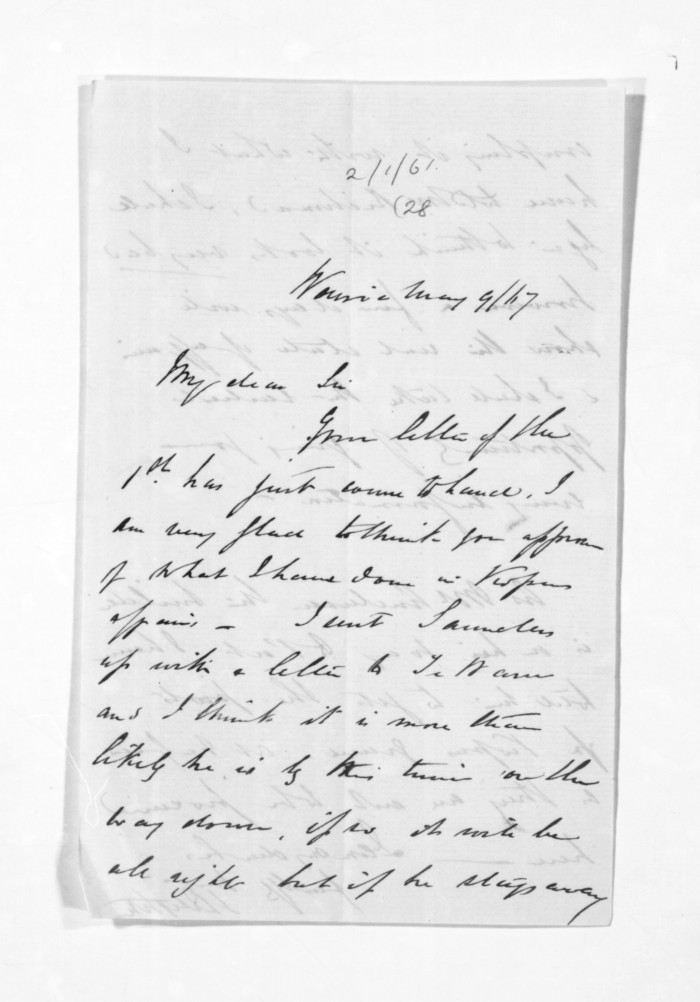 2/1/61.
(28
Wairoa May 9/67
My dear Sir
Your letter of the
1st. has just come to hand. I
am very glad to think you approve
of what I have done in
affairs - I sent Saunders
up with a letter to Te Waru
and I think it is more than
likely he is by this time on the
way down, if so it will be
all right but if he stays away